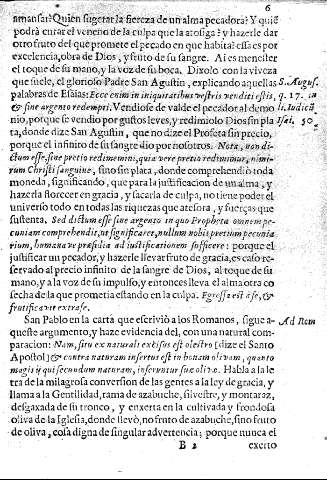 6
amansar? Quien sugetar la fiereza de un alma pecadora? Y quié
podrà curar el veneno de la culpa que la atosiga? y hazerle dar
otro fruto del que promete el pecado en que habita? essa es por
excelencia, obra de Dios, y fruto de su sangre. Ai es menester
el toque de su mano, y la voz de su boca. Dixolo con la viveza
que suele, el glorioso Padre San Augustin, explicando aquellas
S. Augus.
palabras de Esaias: Ecce enim in iniquitatibus vestris venditi estis,
q. 17. in
& sine argento redempti. Vendiose de valde el pecador al demo
li. Iudicū
nio, porque se vendio por gustos leves, y redimiolo Dios sin pla
Isai. 50.
ta, donde dize San Agustin, que no dize el Profeta sin precio,
porque el infinito de su sangre dio por nosotros. Nota, non di-
ctum esse, sine pretio redimemini, quia vere pretio redimimur, nimi-
rum Christi sanguine, sino sin plata, donde comprehendiò toda
moneda, significando, que para la justificacion de un alma, y
hazerla florecer en gracia, y sacarla de culpa, no tiene poder el
universo todo en todas las riquezas que atesora, y fuerças que
sustenta. Sed dictum esse sine argento in quo Propheta omnem pe-
cuniam comprehendit, ut significaret, nullum nobis pretium pecunia
rium, humana ve præsidia ad iustificationem sufficere: porque el
justificar un pecador, y hazerle llevar fruto de gracia, es caso re-
servado al precio infinito de la sangre de Dios, al toque de su
mano, y a la voz de su impulso, y entonces lleva el alma otra co
secha de la que prometia estando en la culpa. Egressa est ase, &
frutificavit extra se.
San Pablo en la carta que escriviò a los Romanos, sigue a-
Ad Rom
queste argumento, y haze evidencia del, con una natural com-
paracion: Nam, si tu ex naturali excisus est oleastro [dize el Santo
Apostol] & contra naturam insertus est in bonam olivam, quanto
magis ij qui secundum naturam, inseruntur suæ olivæ. Habla a la le
tra de la milagrosa conversion de las gentes a la ley de gracia, y
llama a la Gentilidad, rama de azabuche, silvestre, y montaraz,
desgaxada de su tronco, y enxerta en la cultivada y frondosa
oliva de la Iglesia, donde llevò, no fruto de azabuche, sino fruto
de oliva, cosa digna de singular advertencia; porque nunca el
B 2
exerto